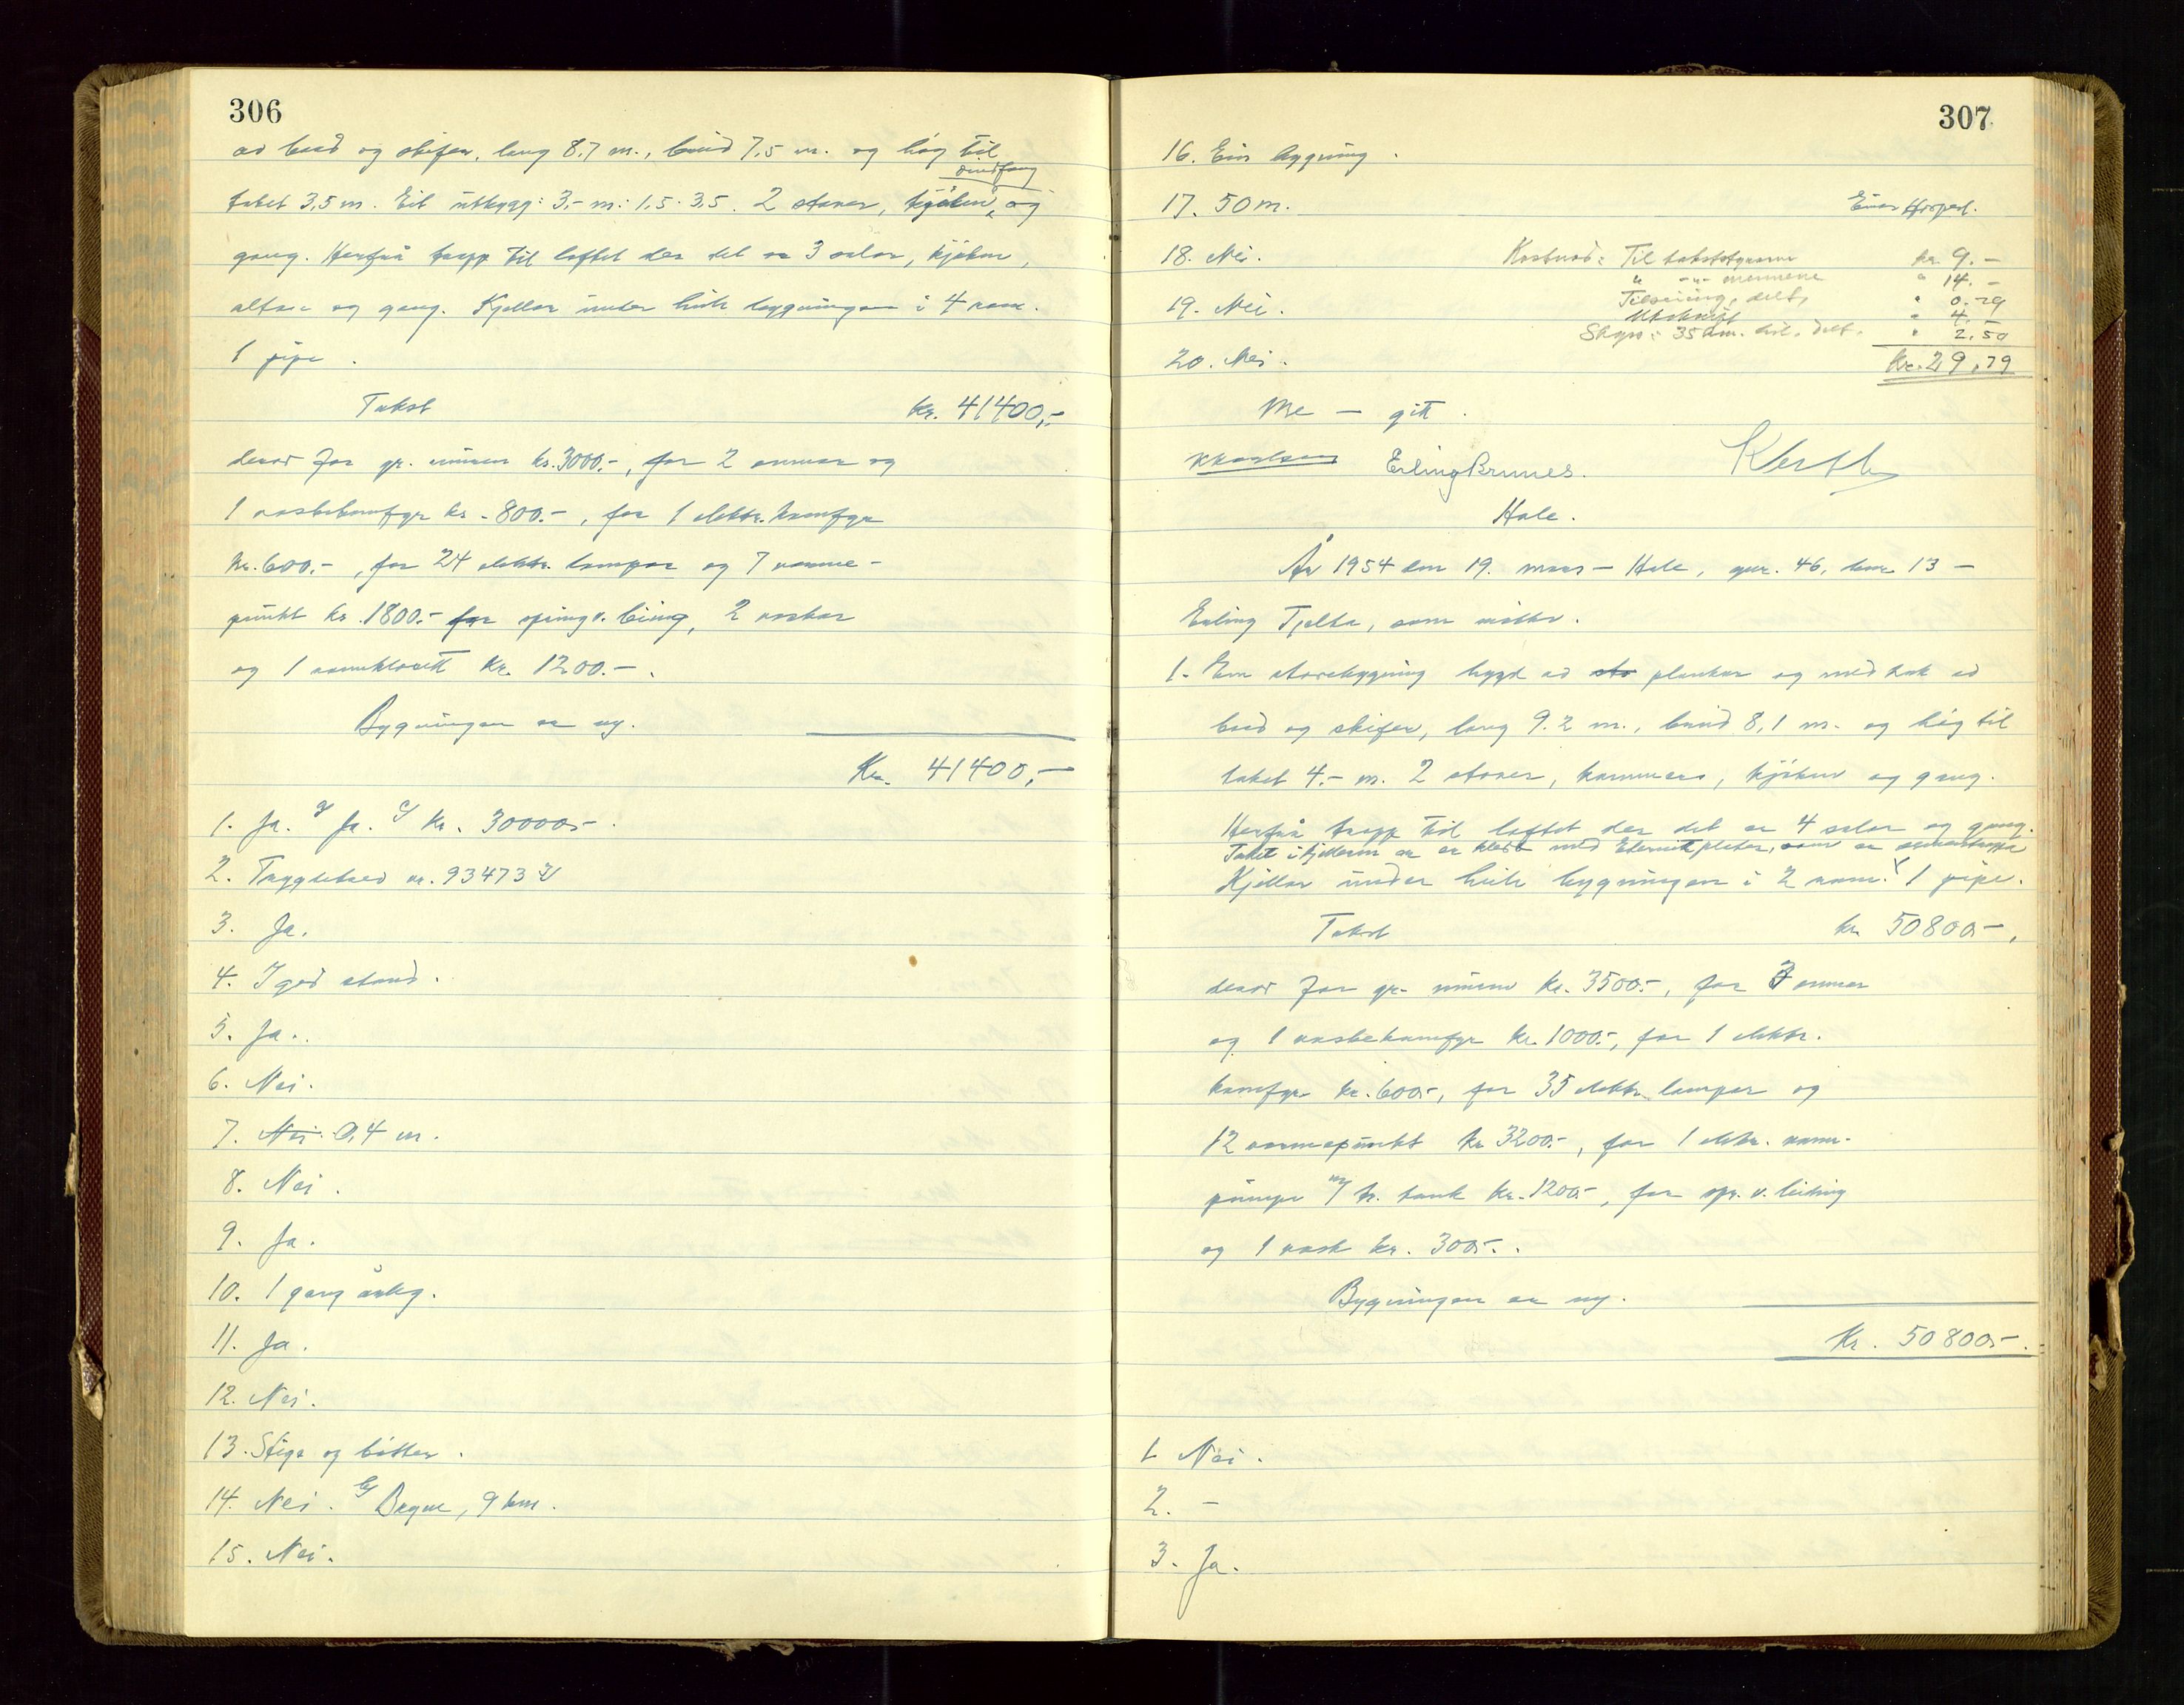 306
av bord og skifer, lang 8,7 m., breid 7,5 m. og høg til
vindfang
taket 3,5 m. Eit utbygg: 3,- m: 1,5 · 3,5. 2 stover, kjøken, og
gang. Herfrå trapp til loftet der det er 3 salar, kjøken,
altan og gang. Kjellar under heile bygningen i 4 rom.
1 pipe.
Takst kr. 41400,-
derav for gr. muren kr. 3000.-, for 2 omnar og
1 vaskekomfyr kr. 800.-, for 1 elektr. komfyr
kr. 600.-, for 24 elektr. lampor og 7 varme-
punkt kr. 1800.- for spring v. leiing, 2 vaskar
og 1 vannklosett kr. 1200.-.
Bygningen er ny.
Kr. 41400,-
1. Ja. b/ Ja. c/ kr. 30000,-.
2. Trygdelaed nr. 93473
3. Ja.
4. I god stand.
5. Ja.
6. Nei.
7. Nei. 0,4 m.
8. Nei.
9. Ja.
10. 1 gang årleg.
11. Ja.
12. Nei.
13. Stige og bøtter.
14. Nei. b/ Bryne, 9 km.
15. Nei.
307
16. Ein bygning.
17. 50 m.
Einar
18. Nei. Kostnad: Til takststyraren kr. 9.-
" -"- mennene " 14.-
19. Nei. Tilseiing, delt, " 0.29
Utskrift " 4.-
Skyss: 35 km. bil, delt. " 2.50
20. Nei. Kr. 29,79
Me — gitt.
Erling Brunes.
Hole.
År 1954 den 19. mars — Hole, gnr. 46, bnr 13 —
Erling Tjelta, som møtte.
1. Ein stovebygning bygd av sto plankar og med tak av
bord og skifer, lang 9.2 m., breid 8,1 m. og høg til
taket 4.- m. 2 stover, kammers, kjøken og gang.
Herfrå trapp til loftet der det er 4 salar og gang.
Taket i kjellaren er er kledd med Eternitplater, som er
Kjellar under heile bygningen i 2 rom. 1 pipe.
Takst kr 50800,-,
derav for gr. muren kr. 3500.-, for 3 omnar
og 1 vaskekomfyr kr. 1000.-, for 1 elektr.
komfyr kr. 600,-, for 35 elektr. lampor og
12 varmepunkt kr 3200.-, for 1 elektr. vann-
pumpe m/ tr. tank kr. 1200,-, for spr. v. leiding
og 1 vask kr. 300,-.
Bygningen er ny.
Kr. 50800,-.
1 Nei.
2. -
3. Ja.